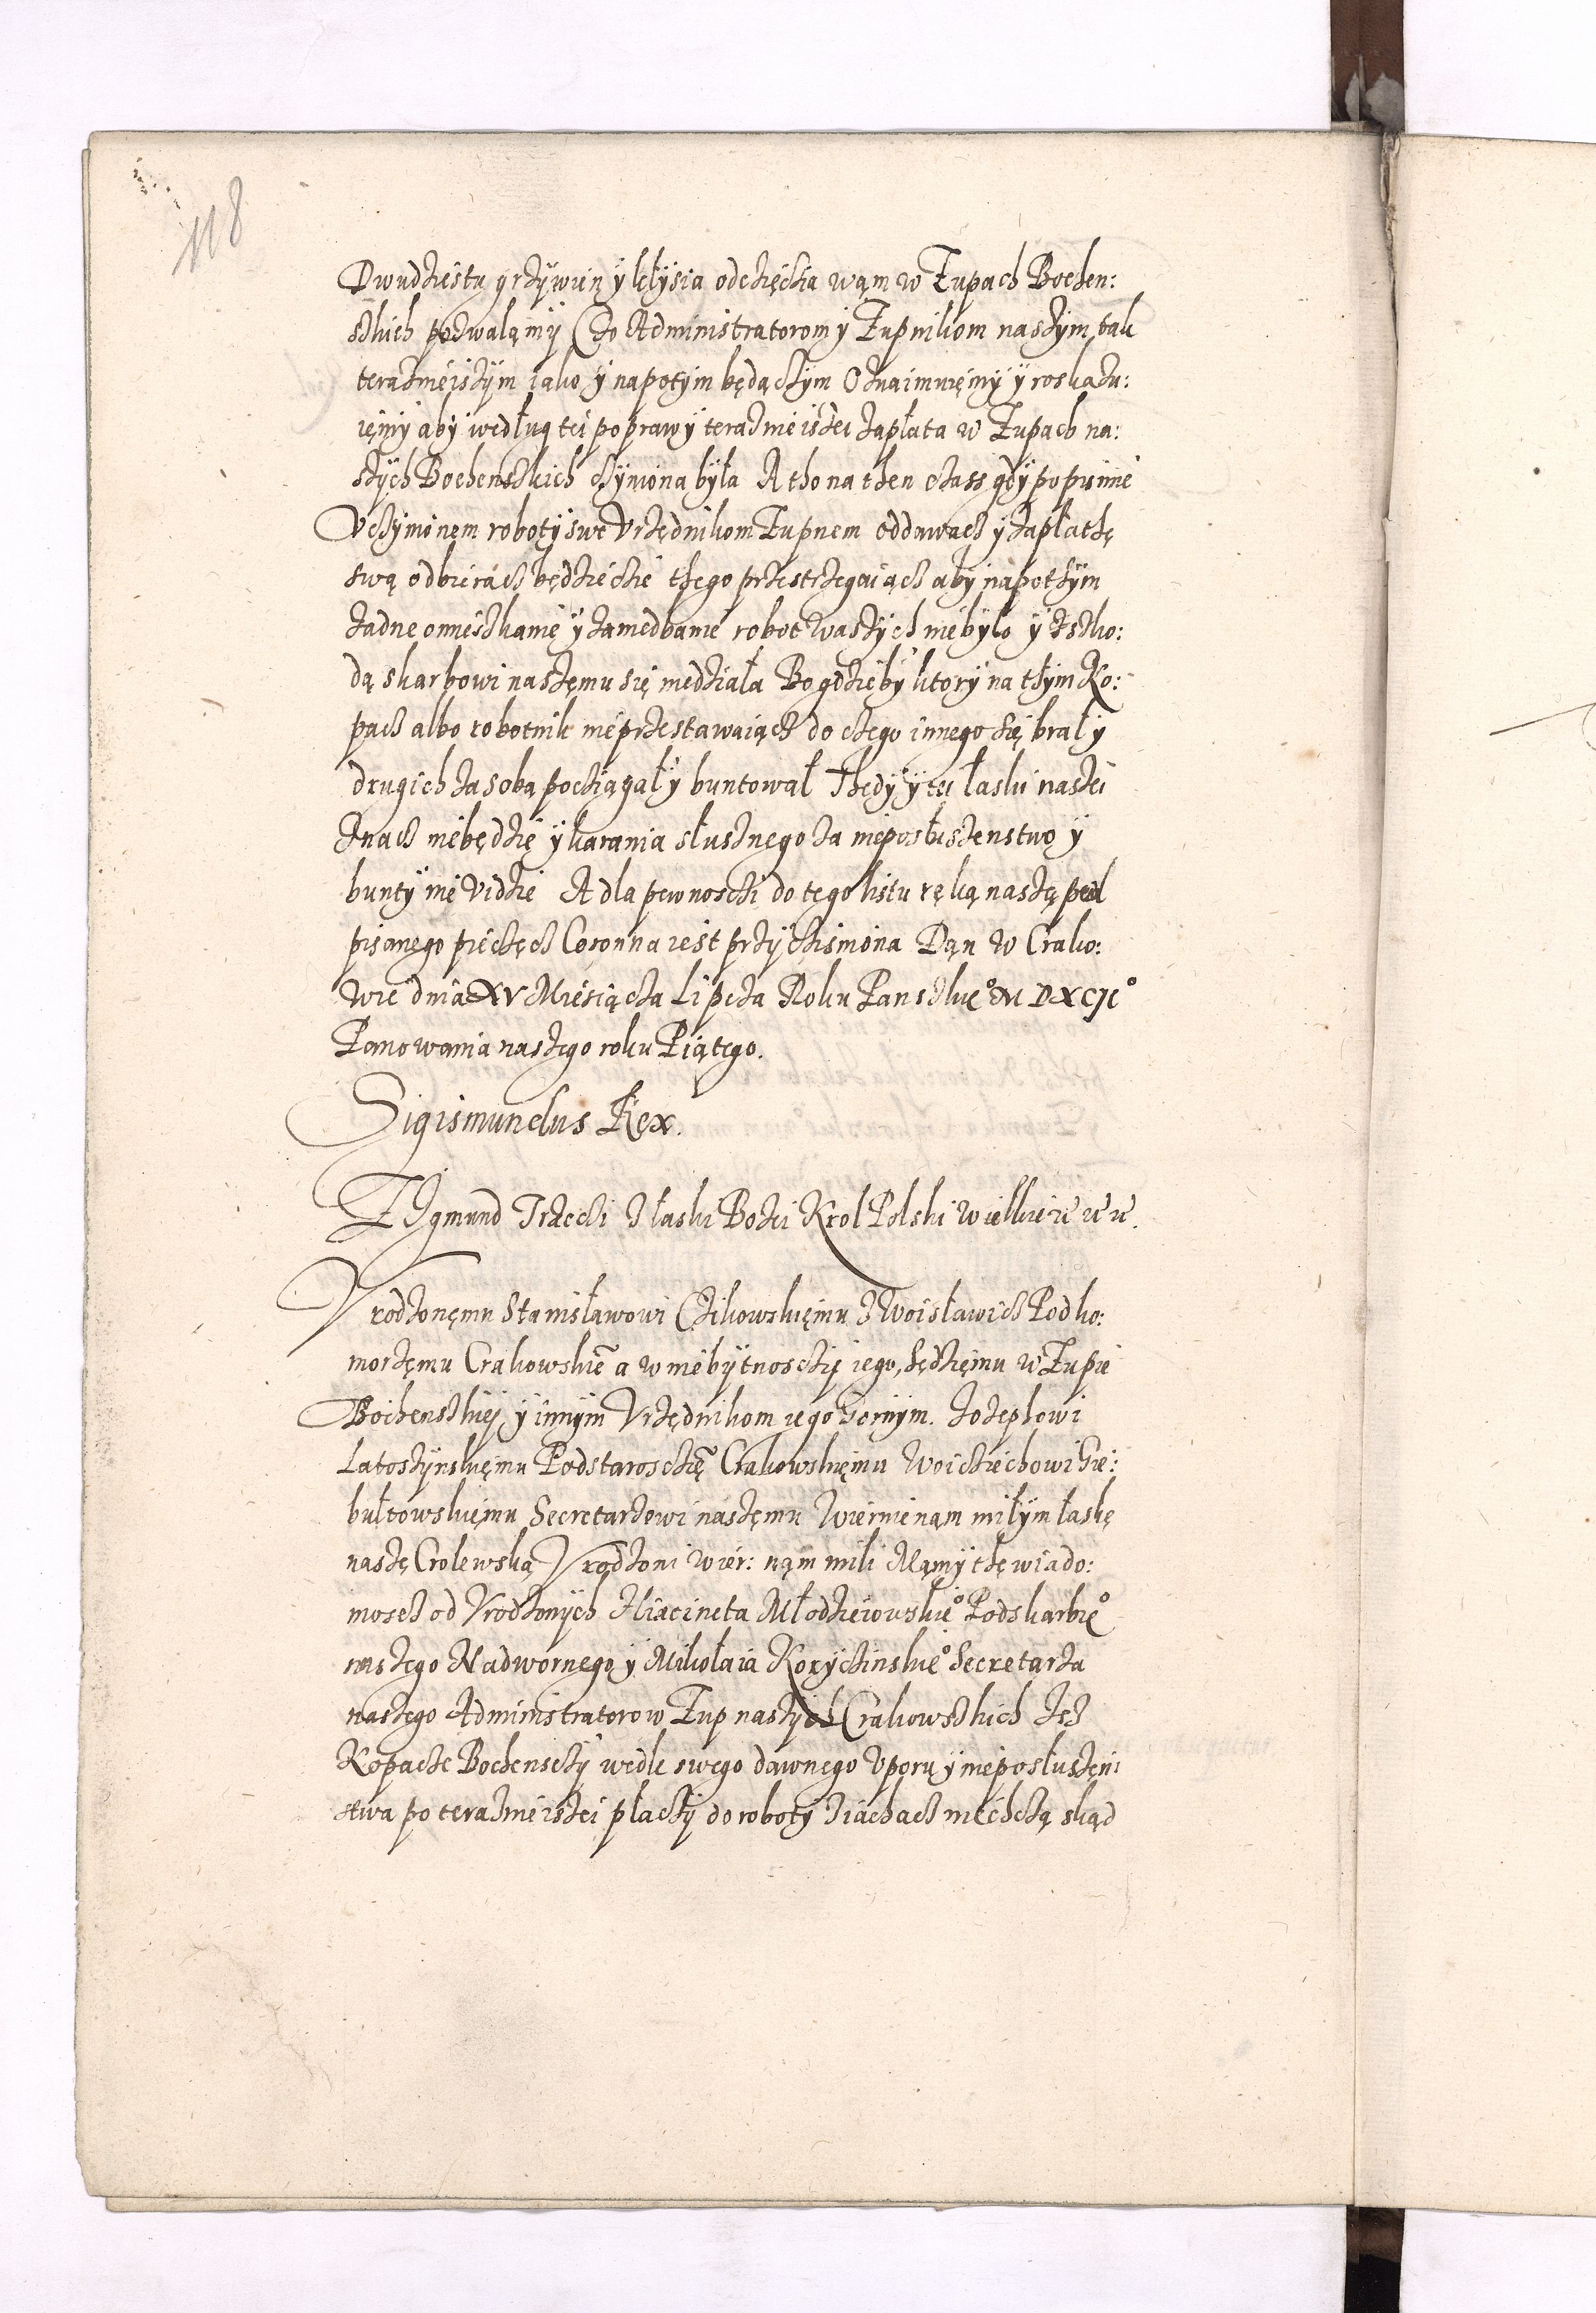 118
Dwudziestu grzÿwien ÿ lzÿsia odczięcia wąm w Żupach Bochen:
skich pozwalamÿ Czo Administratorom ÿ Żupnikom naszÿm tak
teraznieiszÿm iako ÿ napotÿm będączÿm Oznaimuięmÿ ÿ roskazu:
ięmÿ abÿ według tei poprawÿ teraznieiszei zapłata w Żupach na:
szÿch Bochenskich czÿniona bÿła A tho na then czass gdÿ popisnie
Vczÿnionem robotÿ swe Vrzędnikom Żupnem oddawacz ÿ zapłathę
swą odbieracz będziecie thego przestrzegaiącz abÿ napothÿm
zadne omieszkanie ÿ zaniedbanie robot waszÿch niebÿło ÿ szko:
dą skarbowi naszęmu się niedziała Bo gdziebÿ ktorÿ na thÿm Ko:
pacz albo robotnik nieprzestawaiącz do czego innego się brał ÿ
drugich za sobą pocziągał ÿ buntował Thedÿ ÿ tei łaski naszei
znacz niebędzię ÿ karania słusznego za nieposłuszenstwo ÿ
buntÿ nie Vidzie A dla pewnosczi do tego listu ręką naszę pod
pisanego pieczęcz Coronna iest przÿczisniona Dąn w Crako:
wie dnia XV Miesiącza Lipcza Roku Panskię° M D XCII°
Panowania naszego roku Piątego.
Sigismundus Rex.
Zÿgmund Trzeczi z łaski Bozei Krol Polski Wielkie etc etc etc.
Vrodzonęmu Stanisławowi Czikowskięmu z Woisławicz Podko:
morzęmu Crakowskie a w niebÿtnosczię iego, Sędzięmu w Żupie
Bochenskiej ÿ innÿm Vrzędnikom iego Gornÿm. Jozephowi
Latoszÿnskięmu Podstarosczię Crakowskięmu Woicziechowi Gie:
bułtowskięmu Secretarzowi naszęmu Wiernie nąm miłÿm łaskę
naszę Crolewską Vrodzoni Wier: nąm mili Mąmÿ thę wiado:
moscz od Vrodzonÿch Hiacincta Młodzieiowskie° Podskarbie°
naszego Nadwornego ÿ Mikołaia Korÿczinskie° Secretarza
naszego Administratorow Żup naszÿch Crakowskich Jesz
Kopacze Bochensczÿ wedle swego dawnego Vporu ÿ nieposłuszen:
stwa po teraznieiszei płaczÿ do robotÿ ziachacz niechczą skąd